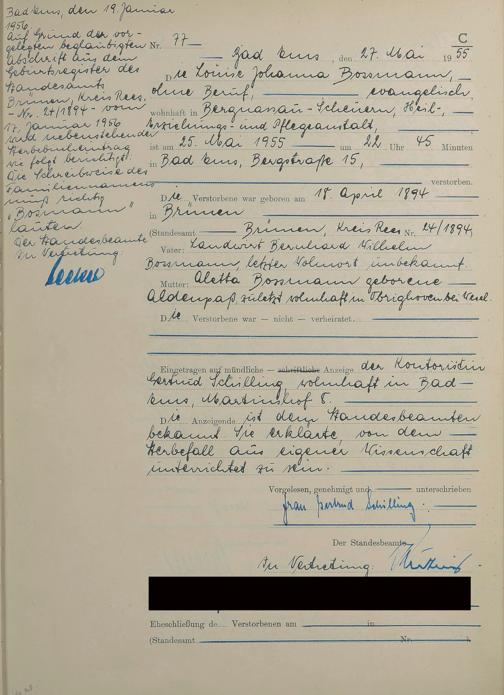 Bad Ems, den 19. Januar
1956
Auf Grund der vor-
gelegten beglaubigten
Abschrift aus dem
Geburtsregister des
Standesamts
Brünen, Kreis Rees
- Nr. 24/1894 - vom
17. Januar 1956
wird nebenstehender
Sterbebucheintrag
wie folgt berichtigt:
Die Schreibweise des
Familiennamens
muß richtig
"Bosmann"
lauten.
Der Standesbeamte
In Vertretung:
C
Nr. 77
Bad Ems, den 27. Mai 1955
Die Louise Johanna Bossmann,
ohne Beruf, evangelisch,
wohnhaft in Bergnassau-Scheuern, Heil-,
Erziehungs- und Pflegeanstalt,
ist am 25. Mai 1955 um 22 Uhr 45 Minuten
in Bad Ems, Bergstraße 15,
verstorben.
Die Verstorbene war geboren am 18. April 1894
in Brünen
(Standesamt Brünen, Kreis Rees Nr. 24/1894)
Vater: Landwirt Bernhard Wilhelm
Bossmann, letzter Wohnort unbekannt.
Mutter: Aletta Bossmann geborene
Aldenpaß zuletzt wohnhaft in Obrighoven bei Wesel.
Die Verstorbene war — nicht — verheiratet
Eingetragen auf mündliche — schriftliche Anzeige der Kontoristin
Gertrud Schilling, wohnhaft in Bad
Ems, Martinshof 8.
Die Anzeigende ist dem Standesbeamten
bekannt. Sie erklärte, von dem
Sterbefall aus eigener Wissenschaft
unterrichtet zu sein.
Vorgelesen, genehmigt und unterschrieben
Frau Gertrud Schilling
Der Standesbeamte
In Vertretung:
Eheschließung de Verstorbenen am in
(Standesamt Nr. )